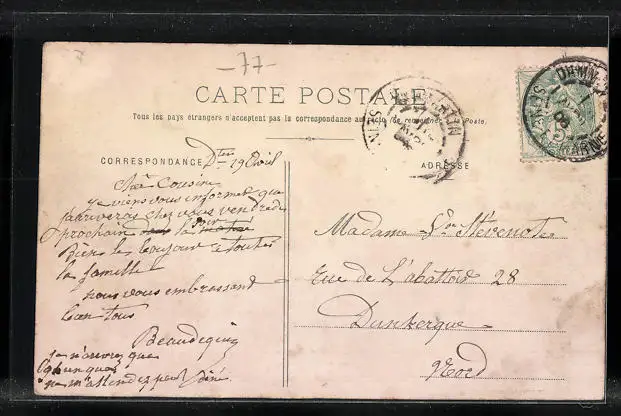 -77-
CARTE POSTALE
Tous les pays étrangers n'acceptent pas la correspondance au recto (Se renseigner à la Poste)
CORRESPONDANCE
ADRESSE
DAMM
SEINE
MARNE
19 Avril
Cousine
je viens vous informer que
j'arriverai chez vous vendredi
prochain
Bien le bonjour à toute
la famille
nous vous embrassant
bien tous
Madame Stévenot
rue de L'abattoir 28
Dunkerque
Nord
je n'arrive que
ne m'attendez pas